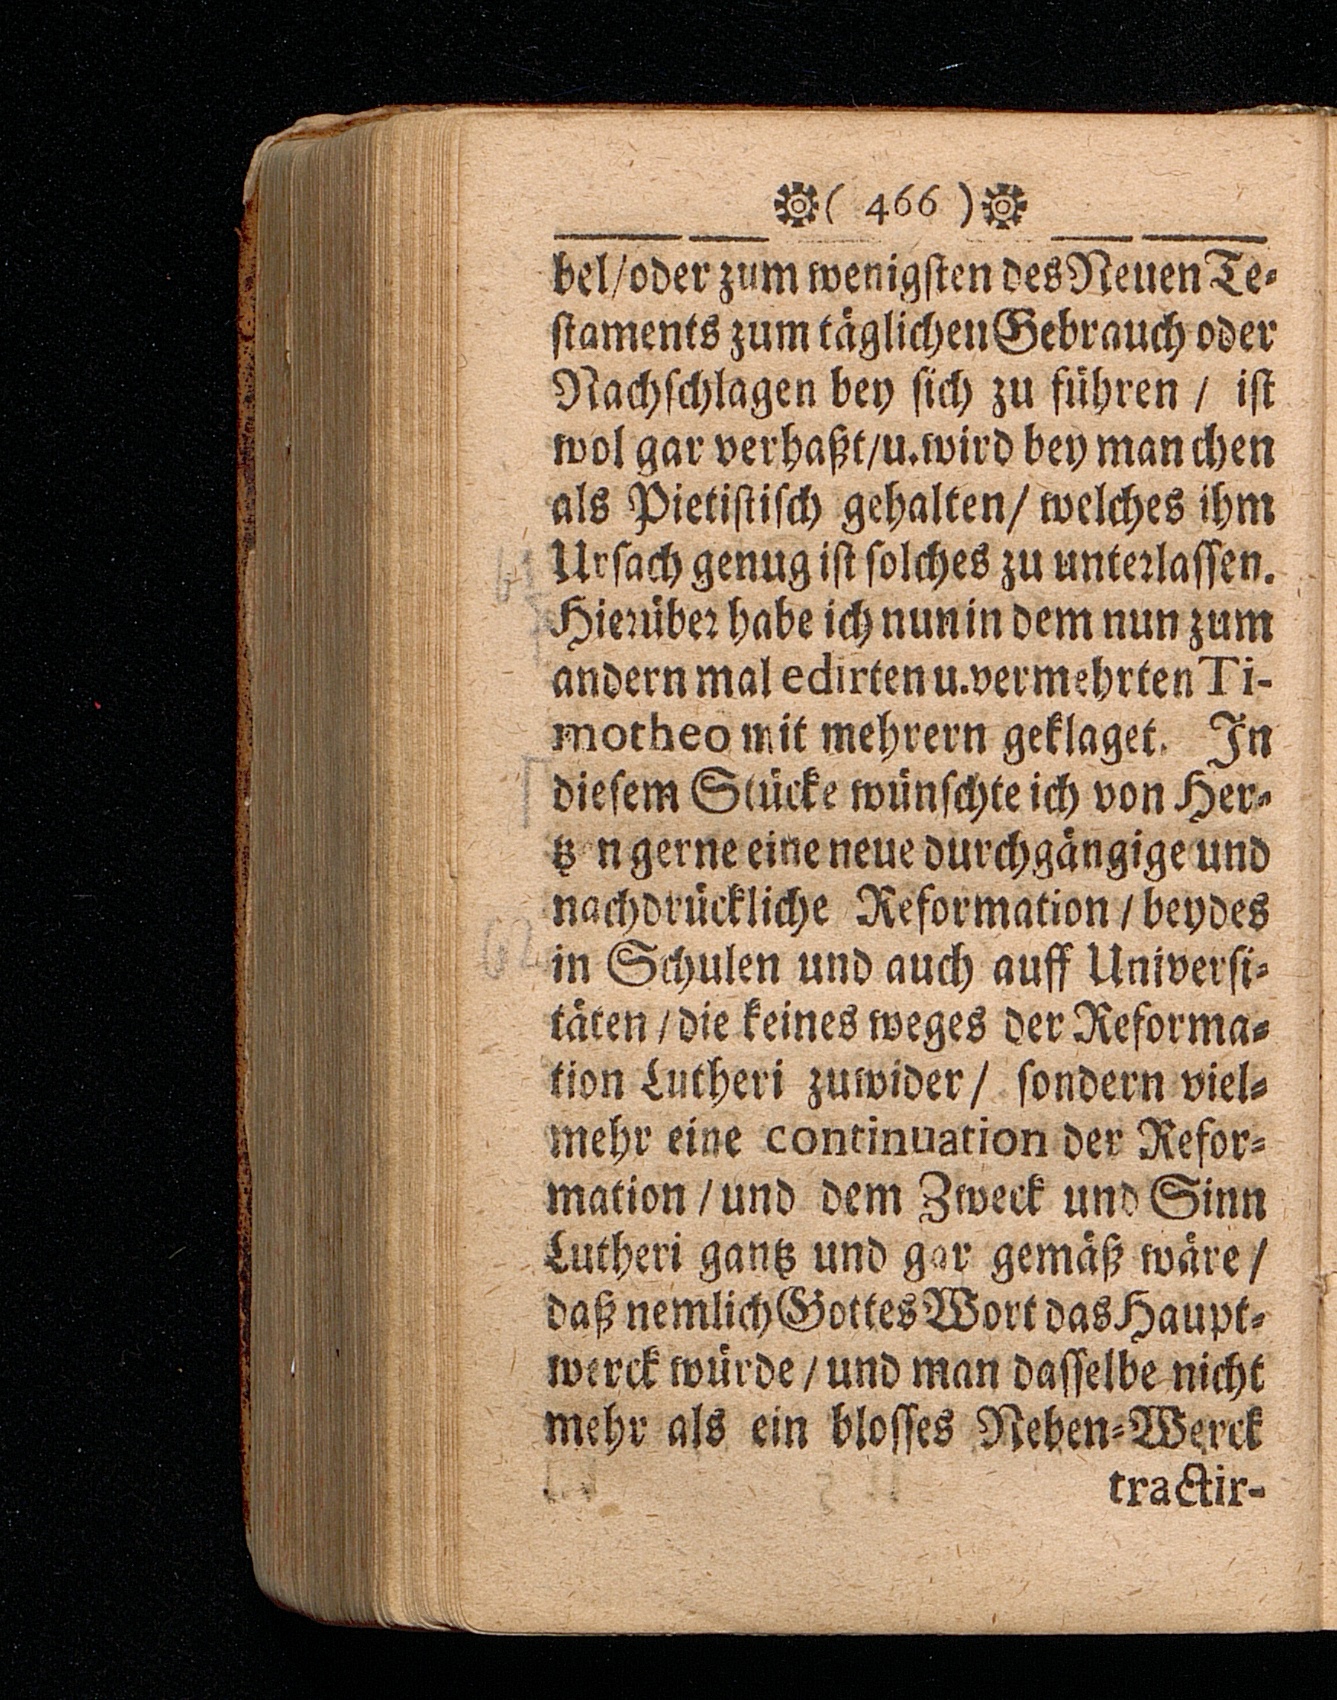 ( 466 )
bel/oder zum wenigſten des Neuen Te-
ſtaments zum täglichen Gebrauch oder
Nachſchlagen bey ſich zu führen / iſt
wol gar verhaßt/u. wird bey manchen
als Pietiſtiſch gehalten/ welches ihm
Urſach genug iſt ſolches zu unterlaſſen.
Hierüber habe ich nun in dem nun zum
andern mal edirten u. vermehrten Ti-
motheo mit mehrern geklaget. In
dieſem Stücke wünſchte ich von Her-
tz n gerne eine neue durchgängige und
nachdrückliche Reformation / beydes
in Schulen und auch auff Univerſi-
täten / die keines weges der Reforma-
tion Lutheri zuwider / ſondern viel-
mehr eine continuation der Refor-
mation / und dem Zweck und Sinn
Lutheri gantz und gar gemäß wäre /
daß nemlich Gottes Wort das Haupt-
werck würde / und man daſſelbe nicht
mehr als ein bloſſes Neben-Werck
tractir-